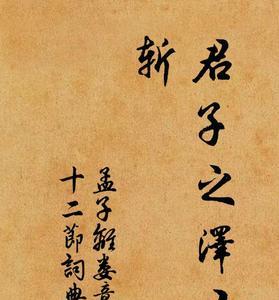 君子之澤
斬
孟子離婁章
十二節詞典